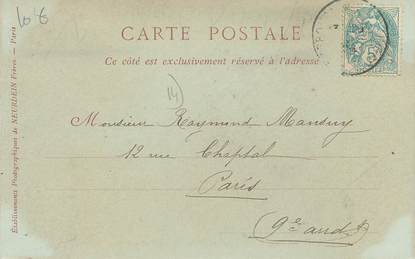 CARTE POSTALE
Ce côté est exclusivement réservé à l'adresse
14)
Monsieur Raymond Mansuy
12 rue Chaptal
Paris
(9e arrdt)
Établissements Photographiques de NEURDEIN Frères. — Paris
5